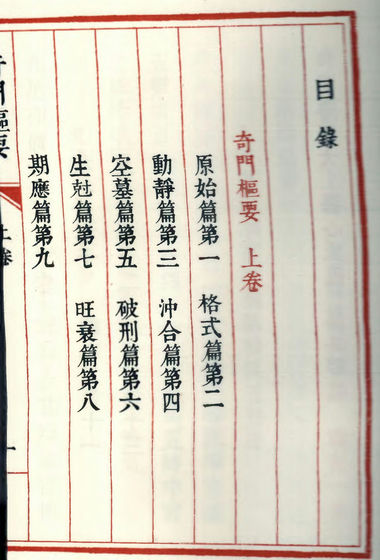 目錄
奇門樞要 上卷
原始篇第一 格式篇第二
動靜篇第三 沖合篇第四
空墓篇第五 破刑篇第六
生尅篇第七 旺衰篇第八
期應篇第九
奇門樞要 上卷 一